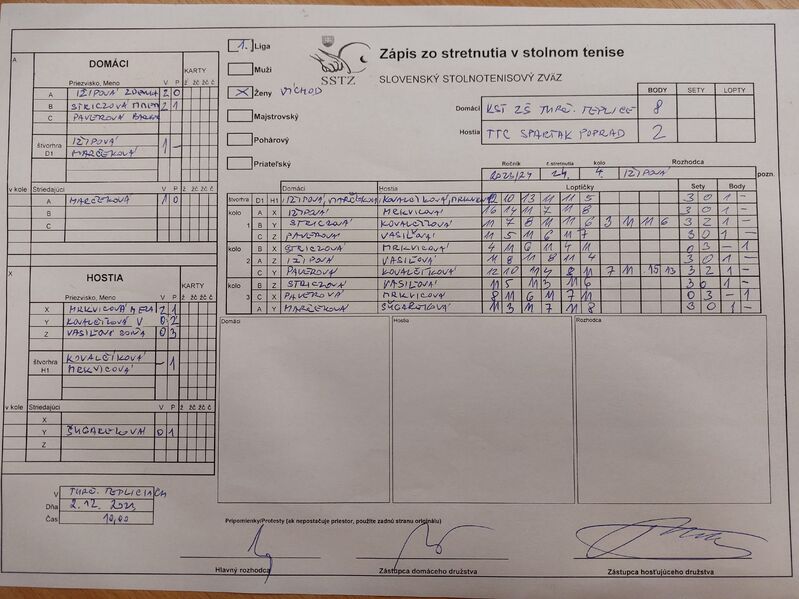 1. Liga
Muži
X Ženy VÝCHOD
Majstrovský
Pohárový
Priateľský
SSTZ
Zápis zo stretnutia v stolnom tenise
SLOVENSKÝ STOLNOTENISOVÝ ZVÄZ
BODY SETY LOPTY
Domáci KST ZŠ TURČ. TEPLICE 8
Hostia TTC SPARTAK POPRAD 2
Ročník č.stretnutia kolo Rozhodca
2023/24 4. IŽIPOVÁ pozn.
A DOMÁCI
KARTY
Priezvisko, Meno V P ž žč žč č
A IŽIPOVÁ ZDENKA 2 0
B STRICZOVÁ 2 1
C PAVEROVÁ
štvorhra D1
IŽIPOVÁ
MARČEKOVÁ 1 -
v kole Striedajúci V P ž žč žč č
A MARČEKOVÁ 1 0
B
C
X HOSTIA
KARTY
Priezvisko, Meno V P ž žč žč č
X MRKVICOVÁ 2 1
Y KOVALČÍKOVÁ V 0 2
Z VASIĽOVÁ SOŇA 0 3
štvorhra H1
KOVALČÍKOVÁ
MRKVICOVÁ - 1
v kole Striedajúci V P ž žč žč č
X
Y ŠUGAREKOVÁ 0 1
Z
V TURČ. TEPLICIACH
Dňa 2.12. 2023
Čas 10,00
Domáci Hostia Loptičky Sety Body
štvorhra D1 H1 IŽIPOVÁ, MARČEKOVÁ KOVALČÍKOVÁ, 12 10 13 11 11 5 3 0 1 -
kolo A X IŽIPOVÁ MRKVICOVÁ 16 14 11 7 11 8 3 0 1 -
1 B Y STRICZOVÁ KOVALČÍKOVÁ 11 7 8 11 6 11 6 3 2 1 -
C Z PAVEROVÁ VASIĽOVÁ 11 5 11 6 11 7 3 0 1 -
kolo B X STRICZOVÁ MRKVICOVÁ 4 11 6 11 4 11 0 3 - 1
2 A Z IŽIPOVÁ VASIĽOVÁ 11 8 11 8 11 4 3 0 1 -
C Y PAVEROVÁ KOVALČÍKOVÁ 12 10 8 11 7 11 15 13 3 2 1 -
kolo B Z STRICZOVÁ VASIĽOVÁ 11 5 11 3 11 6 3 0 1 -
3 C X PAVEROVÁ MRKVICOVÁ 8 11 6 11 7 11 0 3 - 1
A Y MARČEKOVÁ ŠUGAREKOVÁ 11 3 11 7 11 8 3 0 1 -
Domáci Hostia Rozhodca
Pripomienky/Protesty (ak nepostačuje priestor, použite zadnú stranu originálu)
Hlavný rozhodca Zástupca domáceho družstva Zástupca hosťujúceho družstva